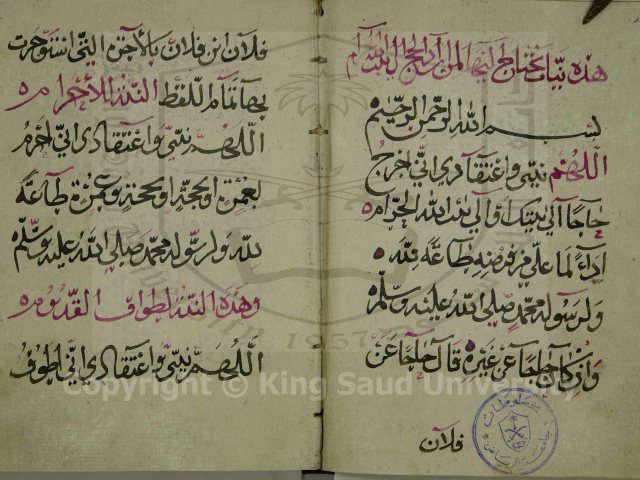 هذه نيات يحتاج اليها من اراد الحج البيت الحرام
بسم الله الرحمن الرحيم
اللهم نيتي واعتقادي اني اخرج
حاجا الى بيتك والى بيت الله الحرام
اداءً لما علي من فرضه طاعة لله
ولرسوله محمد صلى الله عليه وسلم
وان كان حاجا عن غيره قال حاجا عن
فلان
فلان ابن فلان بالاجرة التي استوجرت
بها تمام اللفظ النية للاحرام
اللهم نيتي واعتقادي اني احرم
بعمرة او بحجة او بحجة وعمرة طاعة
لله ولرسوله محمد صلى الله عليه وسلم
وهذه النية لطواف القدوم
اللهم نيتي واعتقادي اني اطوف
Copyright © King Saud University
1957